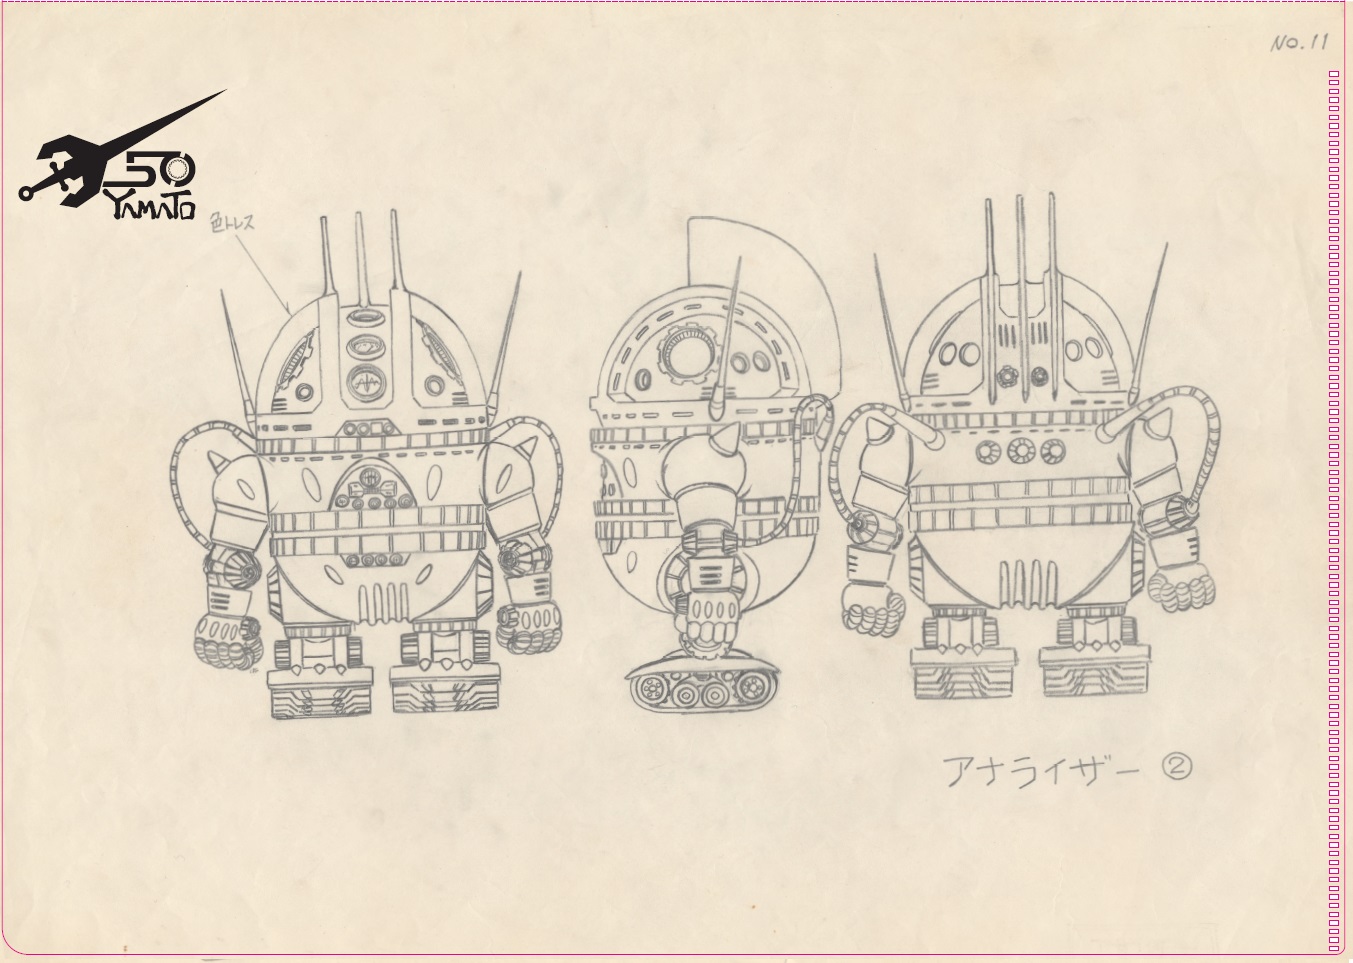 No.11
50
YAMATO
色トレス
アナライザー ②